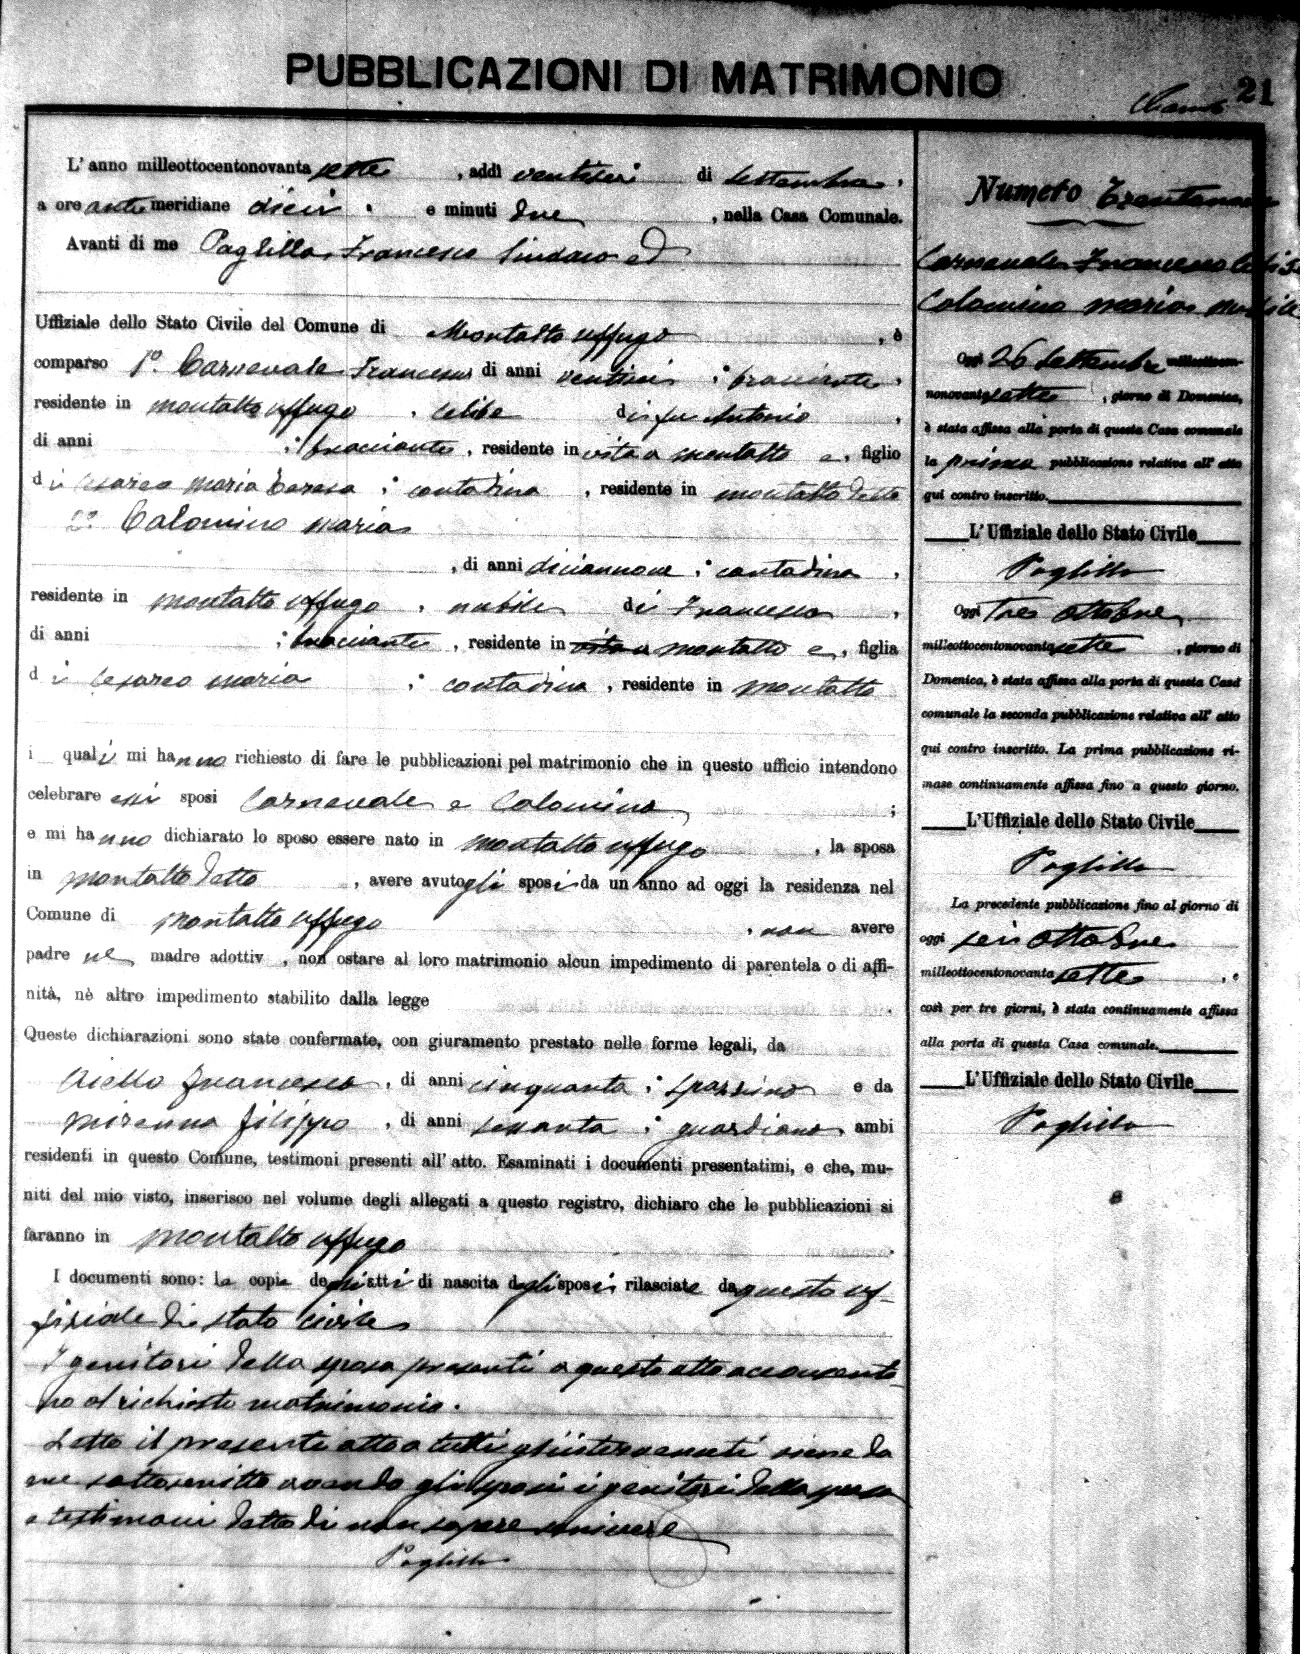 PUBBLICAZIONI DI MATRIMONIO
21
L'anno milleottocentonovanta sette , addì ventisei di settembre ,
a ore anti meridiane dieci e minuti due , nella Casa Comunale.
Avanti di me Paglilla Francesco Sindaco ed
Uffiziale dello Stato Civile del Comune di Montalto uffugo , è
comparso 1º Carnevale Francesco di anni : bracciante ,
residente in montalto uffugo , celibe di fu Antonio ,
di anni : bracciante , residente in vita a montalto e , figlio
di Cesareo maria teresa : contadina , residente in montalto detto
2º Colomino maria
, di anni diciannove : contadina ,
residente in montalto uffugo , nubile di Francesco ,
di anni : bracciante , residente in montalto e , figlia
di Cesareo maria : contadina , residente in montalto
i quali mi hanno richiesto di fare le pubblicazioni pel matrimonio che in questo ufficio intendono
celebrare essi sposi Carnevale e Colomino ;
e mi hanno dichiarato lo sposo essere nato in montalto uffugo , la sposa
in montalto detto , avere avuto gli sposi da un anno ad oggi la residenza nel
Comune di montalto uffugo , non avere
padre ne madre adottiv , non ostare al loro matrimonio alcun impedimento di parentela o di affi-
nità, nè altro impedimento stabilito dalla legge
Queste dichiarazioni sono state confermate, con giuramento prestato nelle forme legali, da
Aiello Francesco , di anni cinquanta : spazzino e da
mirenna filippo , di anni sessanta : guardiano ambi
residenti in questo Comune, testimoni presenti all' atto. Esaminati i documenti presentatimi, e che, mu-
niti del mio visto, inserisco nel volume degli allegati a questo registro, dichiaro che le pubblicazioni si
faranno in montalto uffugo
I documenti sono: le copie degli atti di nascita degli sposi rilasciate da questo uf-
fiziale di stato civile
I genitori della sposa presenti a questo atto acconsento-
no al richiesto matrimonio.
Letto il presente atto a tutti gli intervenuti viene da
me sottoscritto avendo gli sposi i genitori della sposa
e testimoni detto di non sapere scrivere
Paglilla
Numero Trentanove
Carnevale Francesco
Colomino maria
Oggi 26 Settembre milleottocen-
nonovanta sette , giorno di Domenica,
è stata affissa alla porta di questa Casa comunale
la prima pubblicazione relativa all' atto
qui contro inscritto.
L'Uffiziale dello Stato Civile
Paglilla
Oggi tre ottobre
milleottocentonovanta sette , giorno di
Domenica, è stata affissa alla porta di questa Casa
comunale la seconda pubblicazione relativa all' atto
qui contro inscritto. La prima pubblicazione ri-
mase continuamente affissa fino a questo giorno.
L'Uffiziale dello Stato Civile
Paglilla
La precedente pubblicazione fino al giorno di
oggi sei ottobre
milleottocentonovanta sette , e
così per tre giorni, è stata continuamente affissa
alla porta di questa Casa comunale.
L'Uffiziale dello Stato Civile
Paglilla